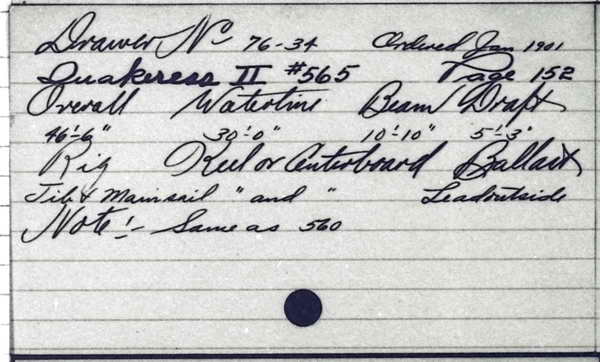 Drawer No 76-34 Ordered Jan 1901
Quakeress II #565 Page 152
Overall Waterline Beam Draft
46'-6" 30'-0" 10'-10" 5'-3"
Rig Keel or Centerboard Ballast
Jib & Mainsail " and " Lead outside
Note:- Same as 560